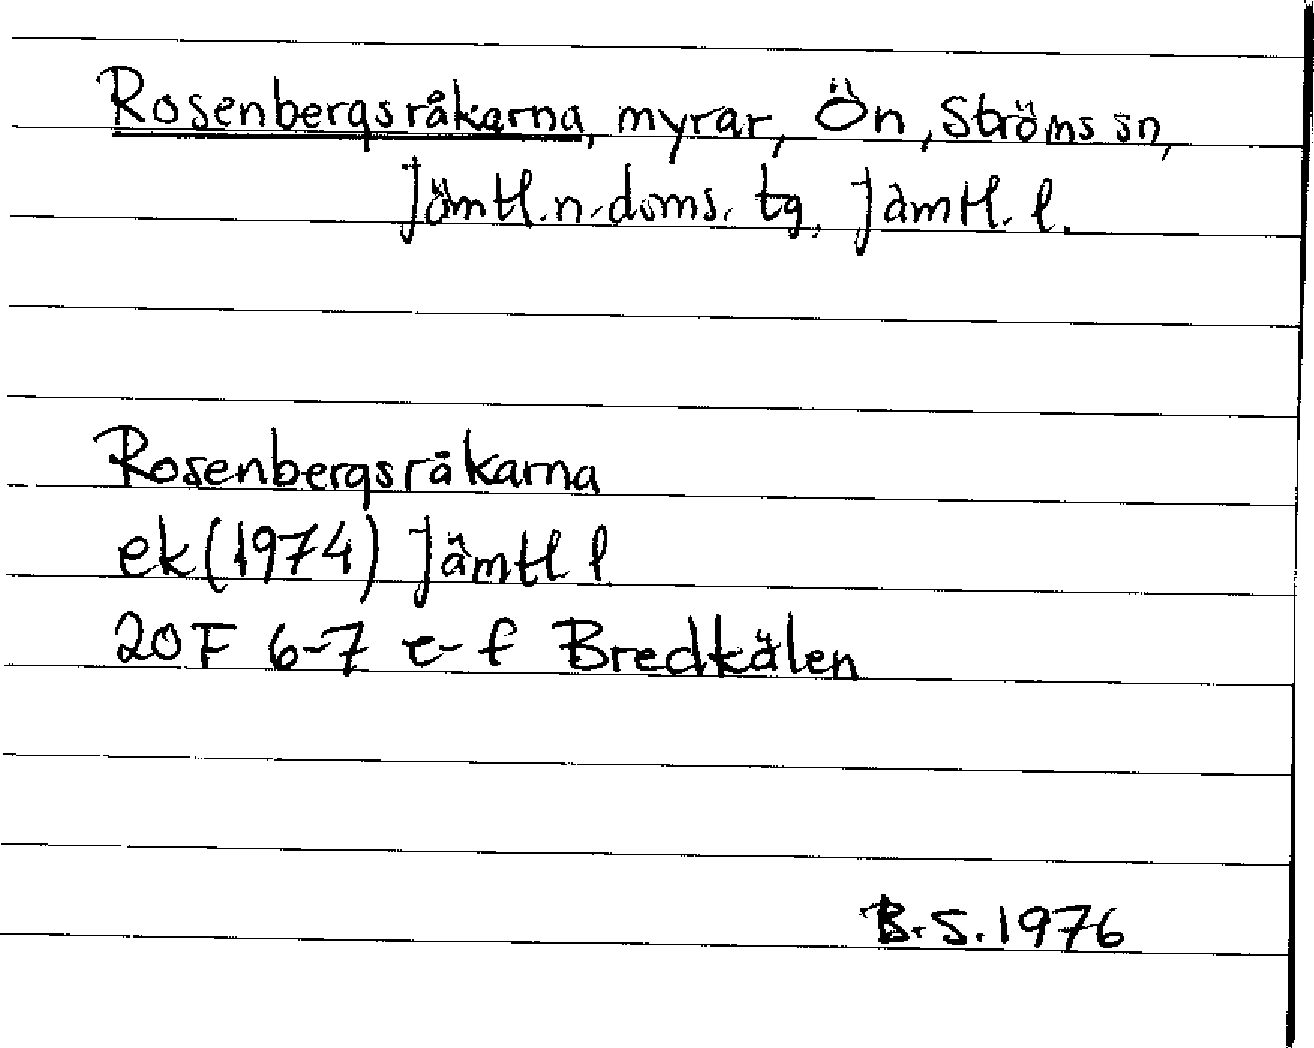 Rosenbergsråkarna, myrar, Ön, Ströms sn,
Jämtl. n. doms. tg, Jämtl. l.
Rosenbergsråkarna
ek (1974) Jämtl l
20F 6-7 e-f Bredkälen
B.S. 1976